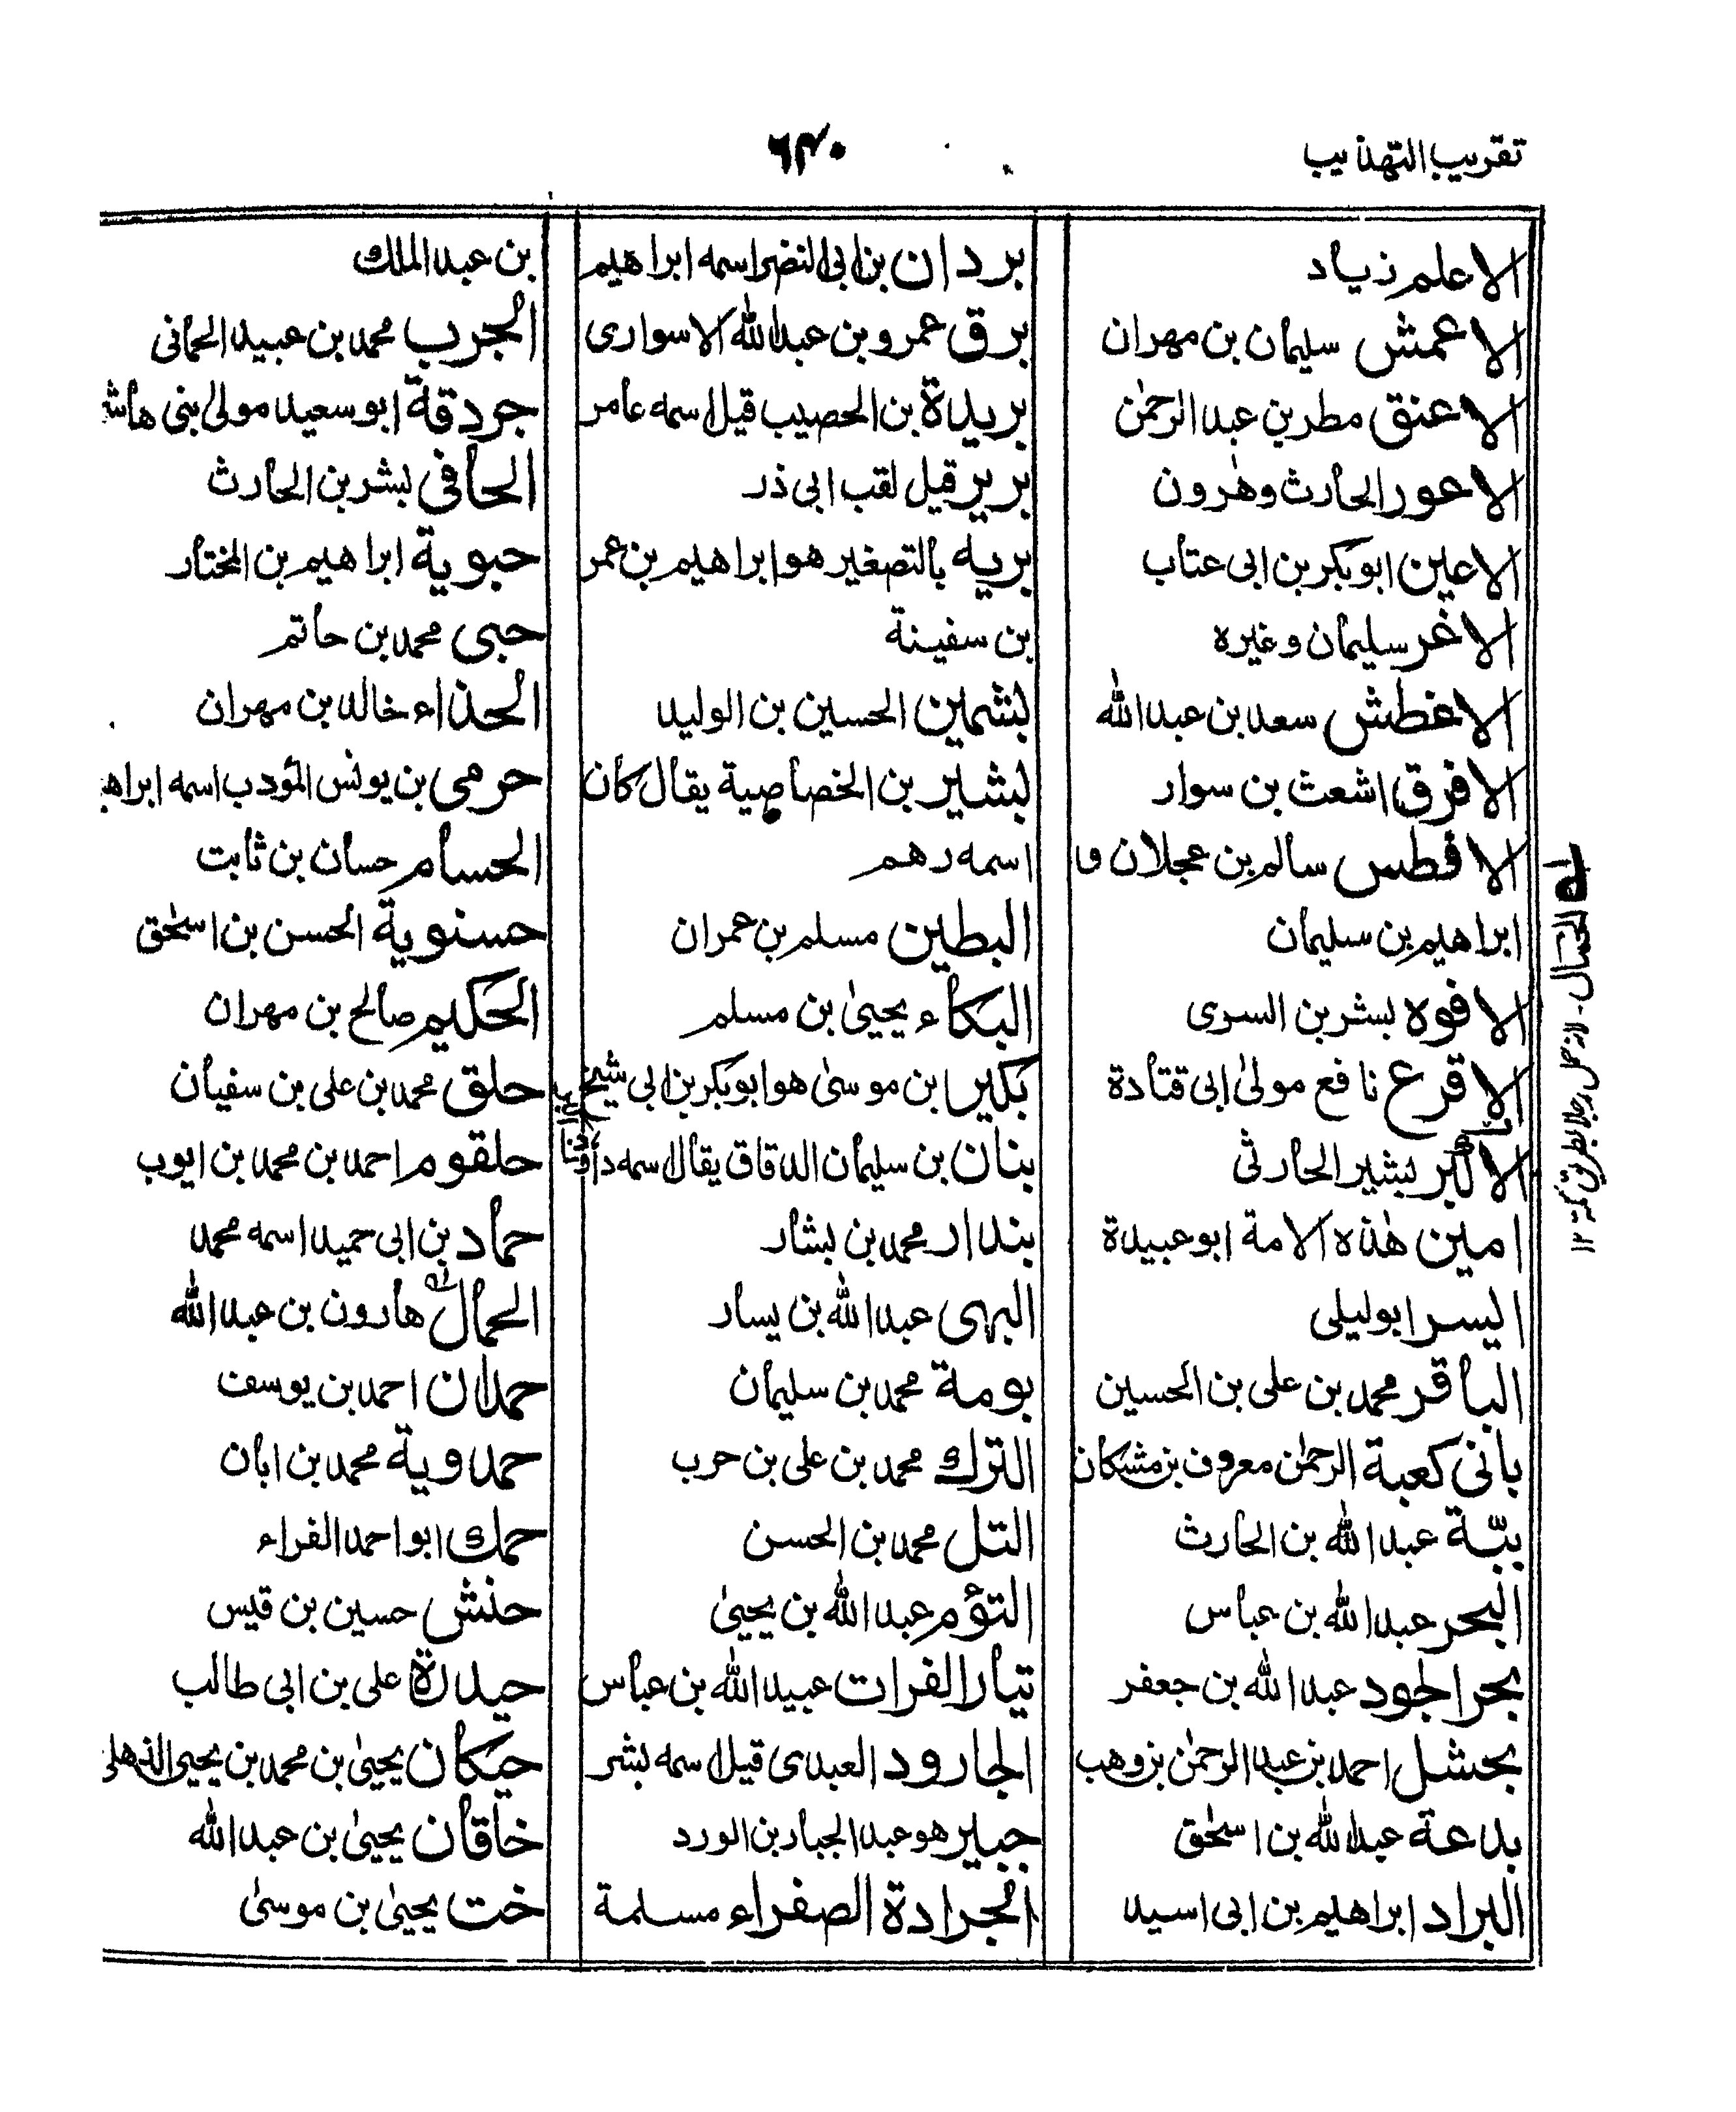 تقريب التهذيب
٦٤٠
الاعلم زياد
الاعمش سليمان بن مهران
الاعنق مطر بن عبد الرحمٰن
الاعور الحارث وهٰرون
الاعين ابو بكر بن ابى عتاب
الاغر سليمان وغيره
الاغطش سعد بن عبد الله
الافرق اشعث بن سوار
الافطس سالم بن عجلان و
ابراهيم بن سليمان
الافوه بشر بن السرى
الاقرع نافع مولىٰ ابى قتادة
الاكبر بشير الحارثى
امين هٰذه الامة ابو عبيدة
اليسر ابو ليلى
الباقر محمد بن على بن الحسين
بانى كعبة الرحمٰن معروف بن مشكان
ببّة عبد الله بن الحارث
البحر عبد الله بن عباس
بحر الجود عبد الله بن جعفر
بحشل احمد بن عبد الرحمٰن بن وهب
بدعة عبد الله بن اسحٰق
البراد ابراهيم بن ابى اسيد
بردان بن ابى النضر اسمه ابراهيم
برق عمرو بن عبد الله الاسوارى
بريدة بن الحصيب قيل اسمه عامر
برير قيل لقب ابى ذر
بريه بالتصغير هو ابراهيم بن عمر
بن سفينة
بشمين الحسين بن الوليد
بشير بن الخصاصية يقال كان
اسمه رهم
البطين مسلم بن عمران
البكاء يحيىٰ بن مسلم
بكير ابن موسىٰ هو ابو بكر بن ابى شيخ
بنان بن سليمان الدقاق يقال اسمه داود
بندار محمد بن بشار
البهى عبد الله بن يسار
بومة محمد بن سليمان
الترك محمد بن على بن حرب
التل محمد بن الحسن
التؤم عبد الله بن يحيىٰ
تيار الفرات عبيد الله بن عباس
الجارود العبدى قيل اسمه بشر
جبير هو عبد الجبار بن الورد
الجرادة الصفراء مسلمة
بن عبد الملك
الجرب محمد بن عبيد الحمانى
جردقة ابو سعيد مولى بنى هاش
الحافى بشر بن الحارث
حبوية ابراهيم بن المختار
حبى محمد بن حاتم
الحذاء خالد بن مهران
حرمى بن يونس المؤدب اسمه ابراه
الحسام حسان بن ثابت
حسنوية الحسن بن اسحٰق
الحكيم صالح بن مهران
حلق محمد بن على بن سفيان
حلقوم احمد بن محمد بن ايوب
حماد بن ابى حميد اسمه محمد
الحمال له هارون بن عبد الله
حمدان احمد بن يوسف
حمدوية محمد بن ابان
حمك ابو احمد الفراء
حنش حسين بن قيس
حيدرة على بن ابى طالب
حيكان يحيىٰ بن محمد بن يحيى الذهلى
خاقان يحيىٰ بن عبد الله
خت يحيىٰ بن موسىٰ
له الحمال - لانه حمل رجلا بطريق مكة ١٢